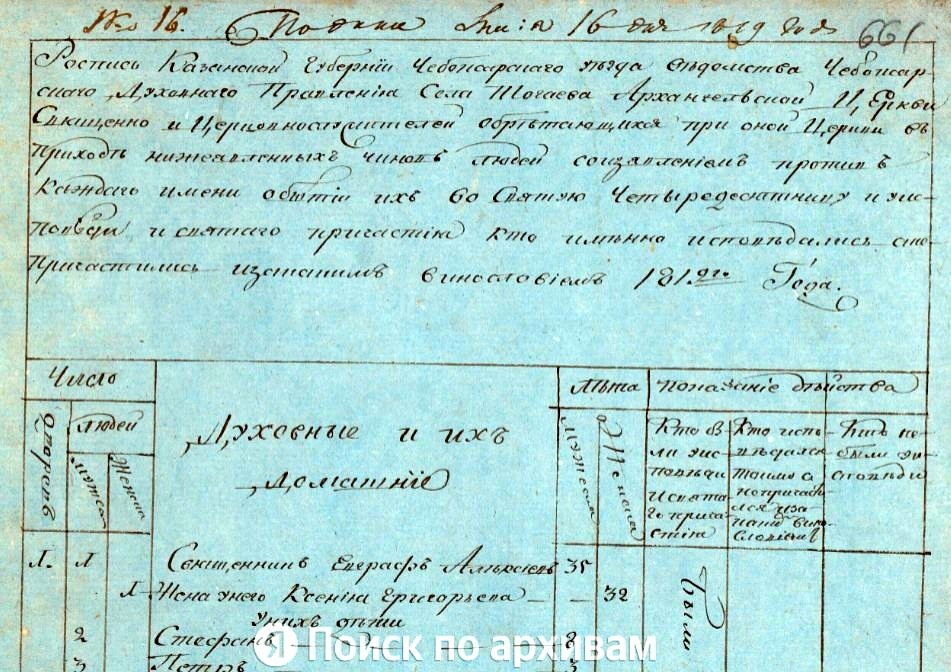 № 16. Подана 16 дня 1819 года
661
Роспись Казанской Губернїи Чебоксарскаго уѣзда вѣдомства Чебоксар-
скаго Духовнаго Правленїя Села Тогаева Архангельской Церкви
Священно и Церковнослужителей обрѣтающихся при оной Церкви въ
приходѣ нижеявленныхъ чиновъ людей со изъявленїемъ противъ
каждаго имени о бытїи ихъ во Святую Четыредесятницу и у ис-
повѣди и святаго причастїя кто имѣнно исповѣдались
Причастились
винословїемъ 181 Года.
Число
Лѣта
показанїе дѣйства
дворовъ
людей
мужеска
Женска
Духовные и ихъ
Домашнїе
мужеска
Женска
Кто бы-
ли у ис-
повѣди
и свята-
го прича-
стїя
Кто испо-
вѣдался
токмо а
не причас-
тился и за
какимъ вино-
словїемъ
Кто не
были у ис-
повѣди
1. 1 Священникъ Евграфъ Алексѣевъ 35
1 Жена у него Ксенїя Григорьева 32
были
У нихъ дѣти
2 Стефанъ 8
3 Петръ
Поиск по архивам